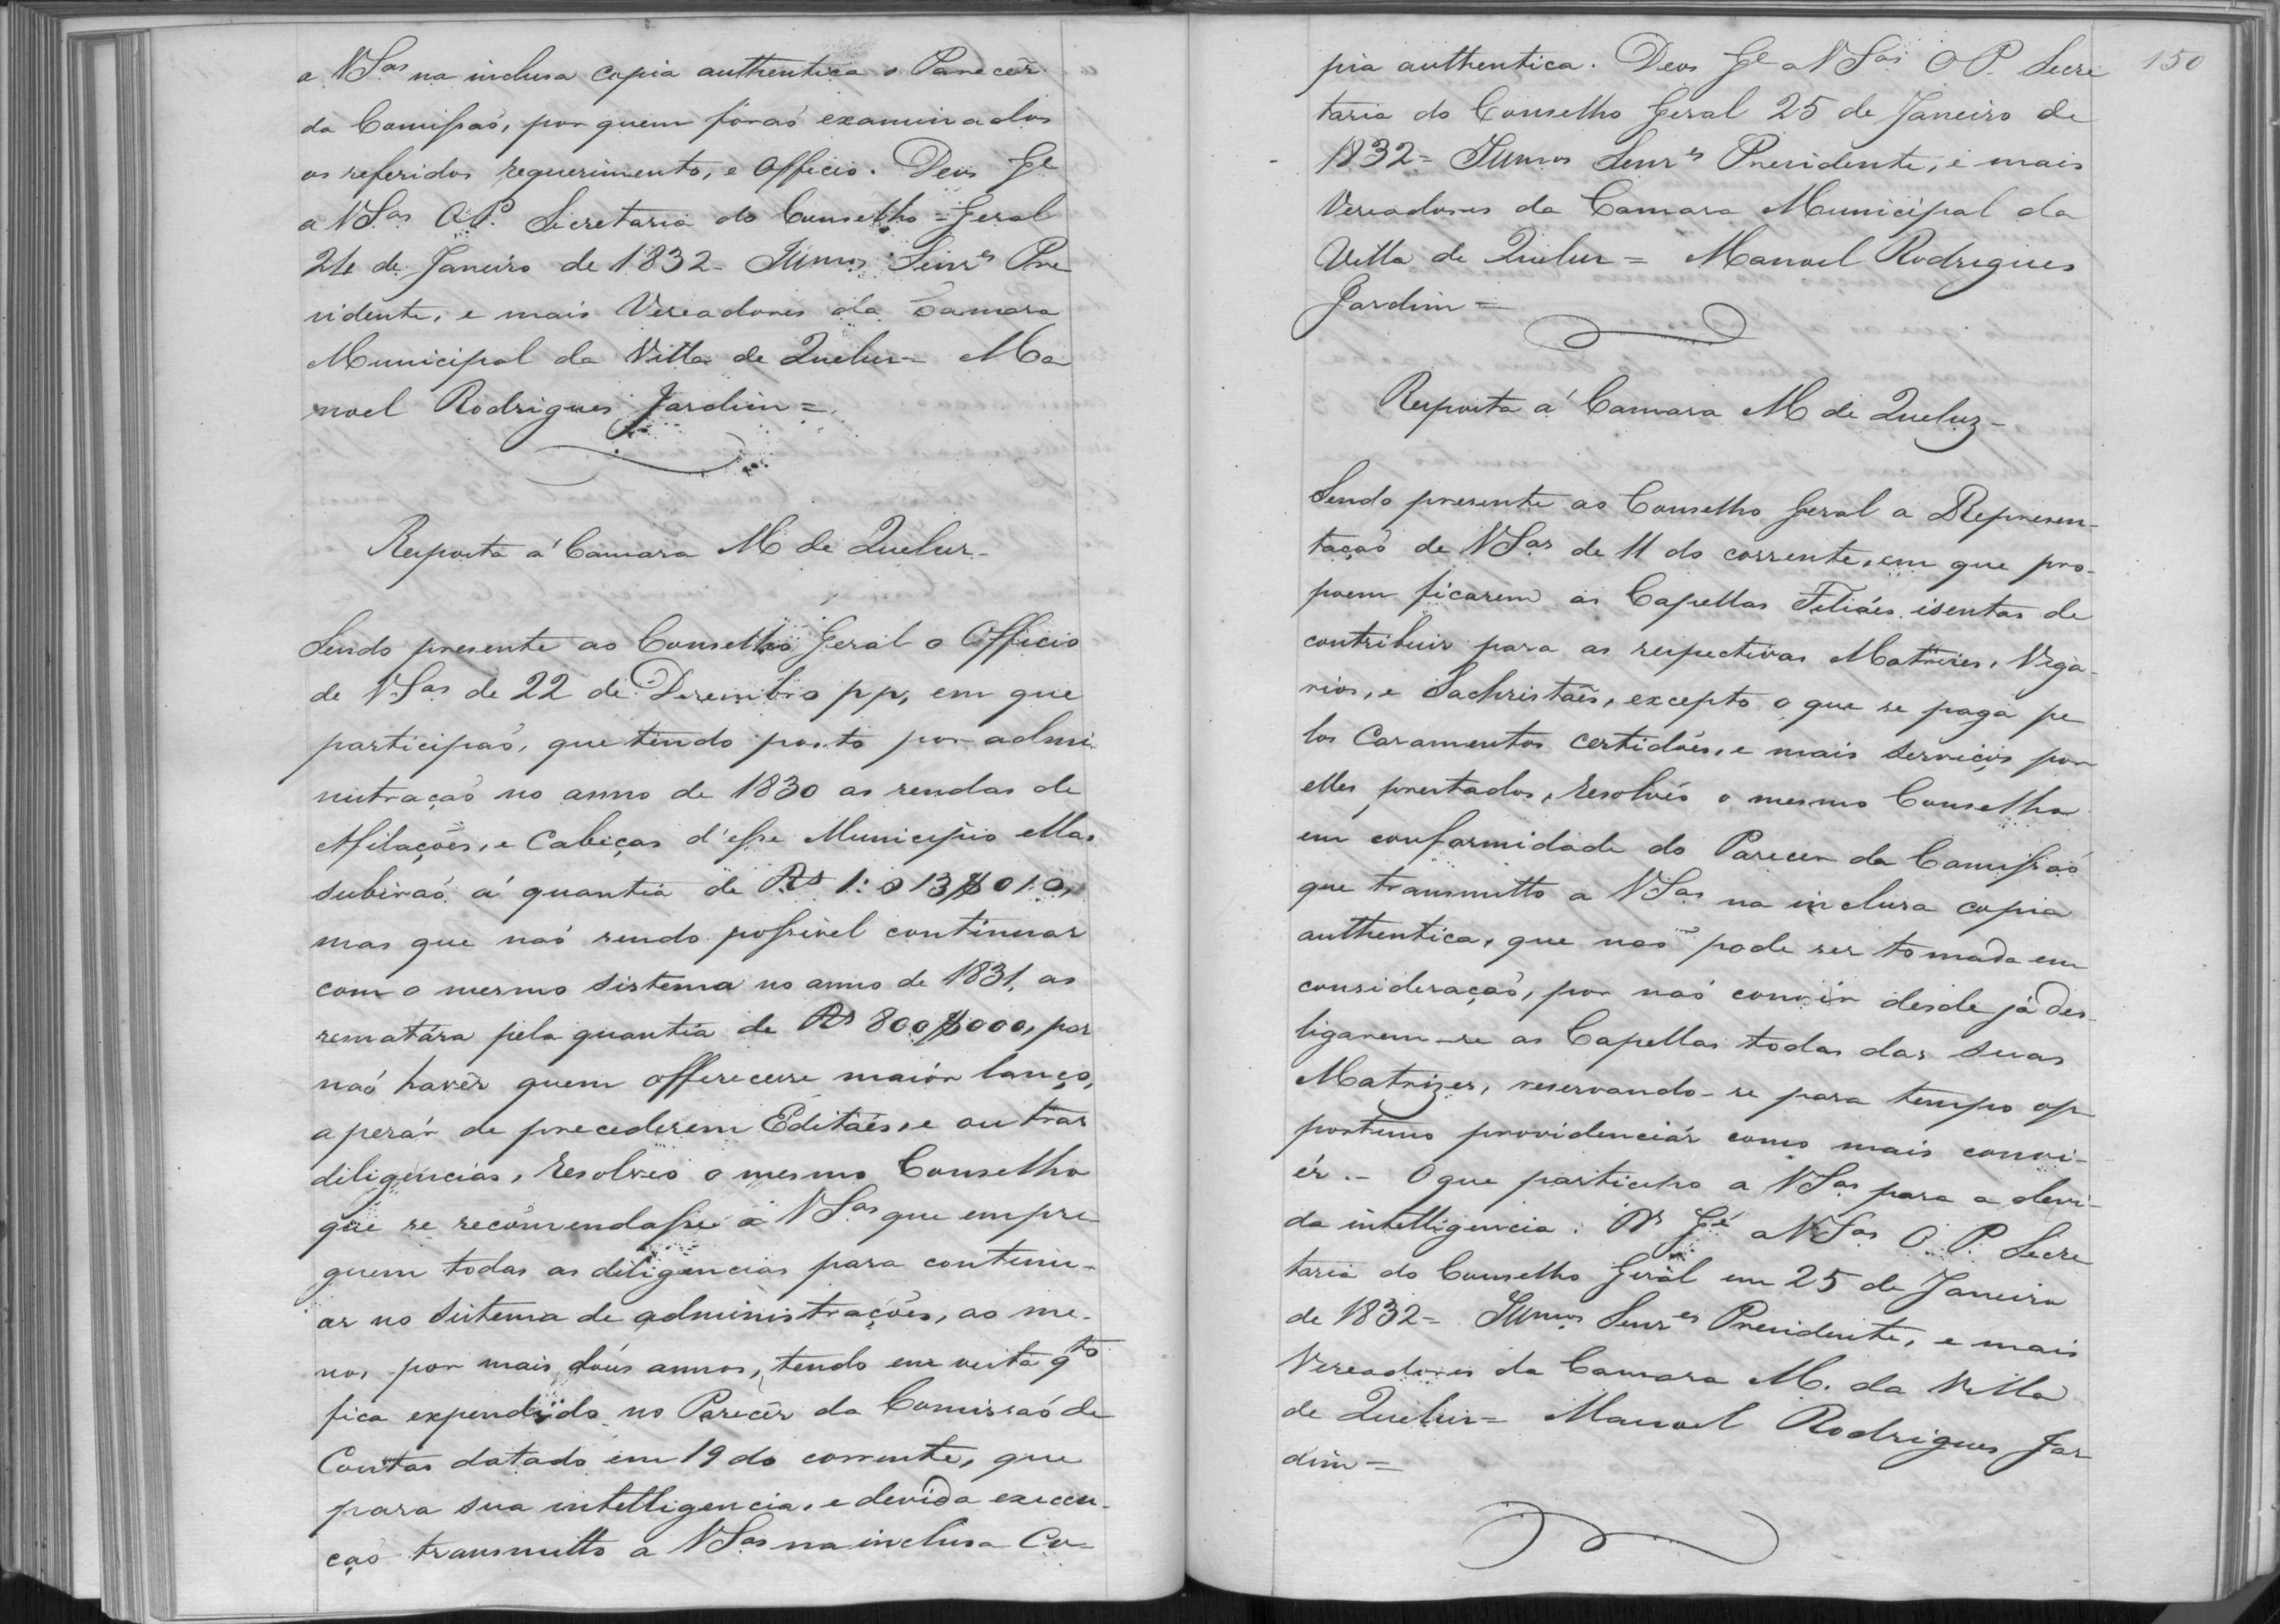 a VSas na inclusa copia authentica o Parecêr
da Comissaõ, por quem foraõ examinados
os referidos requerimento, e Officio. Deos Ge
a VSas O.P. Secretaria do Conselho = Geral
24 de Janeiro de 1832 - Illmos Senres Pre
zidente, e mais Vereadores da Camara
Municipal da Villa de Queluz = Ma
noel Rodrigues Jardim =
Resposta á Camara M de Queluz -
Sendo presente ao Conselho Geral o Officio
de VSas de 22 de Dezembro pp, em que
participaõ, que tendo posto por admi
nistraçaõ no anno de 1830 as rendas de
Afilaçoẽs, e Cabeças d'esse Municipio ellas
subiraõ á quantia de Rs 1:013$010,
mas que naõ sendo possivel continuar
com o mesmo sistema no anno de 1831, as
rematára pela quantia de Rs 800$000, por
naõ havêr quem offerecesse maiór lanço,
apezár de precederem Editáes, e outras
diligencias, resolveo o mesmo Conselho
que se recomendasse a VSas que empre
guem todas as diligencias para continu-
ar no sistema de administraçoẽs, ao me-
nos por mais doús annos, tendo em vista qto
fica expendido no Parecêr da Comissaõ de
Contas datado em 19 do corrente, que
para sua intelligencia, e devida execu-
çaõ transmitto a VSas na inclusa Co-
150
pia authentica. Deos Ge a VSas O P. Secre
taria do Conselho Geral 25 de Janeiro de
1832 = Illmos Senres Presidente, e mais
Vereadores da Camara Municipal da
Villa de Queluz = Manoel Rodrigues
Jardim =
Resposta á Camara M de Queluz -
Sendo presente ao Conselho Geral a Represen-
taçaõ de VSas de 11 do corrente, em que pro-
poem ficarem as Capellas Filiáes isentas de
contribuir para as respectivas Matrizes, Viga-
rios, e Sachristaẽs, excepto o que se paga pe
los Casamentos certidoẽs, e mais serviços por
elles prestados, resolvéo o mesmo Conselho
em conformidade do Parecer da Comissaõ
que transmitto a VSas na inclusa copia
authentica, que naõ pode ser tomada em
consideraçaõ, por naõ convir desde já des
ligarem-se as Capellas todas das suas
Matrizes, reservando-se para tempo op
portuno providenciár como mais convi-
ér. - O que participo a VSas para a devi-
da intelligencia. Ds Ge a VSas O. P. Secre
taria do Conselho Geral em 25 de Janeiro
de 1832 = Illmos Senres Presidente, e mais
Vereadores da Camara M. da Villa
de Queluz = Manoel Rodrigues Jar
dim =